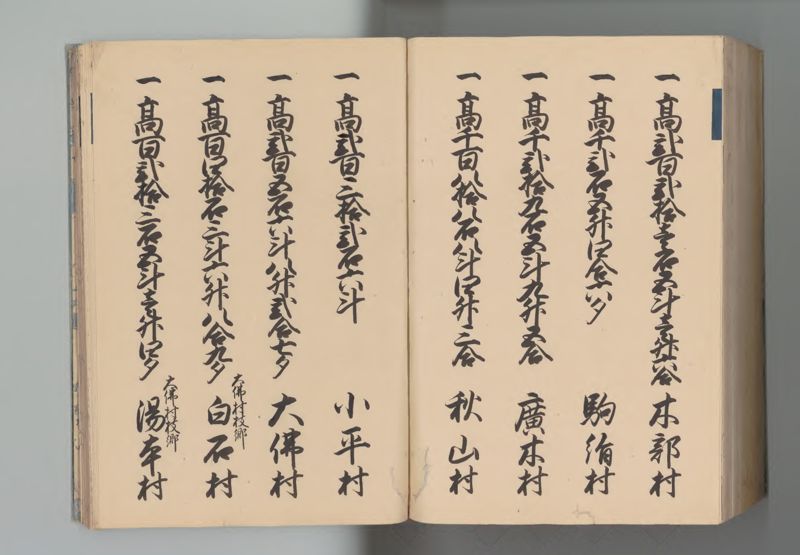 一高弐百弐拾壱石五斗壱升六合 木部村
一高千弐石五升四合六夕 駒衿村
一高千弐拾九石五斗九升五合 廣木村
一高千百八拾八石八斗四升三合 秋山村
一高弐百三拾弐石六斗 小平村
一高弐百五石六斗八升弐合七夕 大佛村
大佛村枝郷
一高百四拾石三斗六升八合九夕 白石村
大佛村枝郷
一高百弐拾三石五斗壱升四夕 湯本村